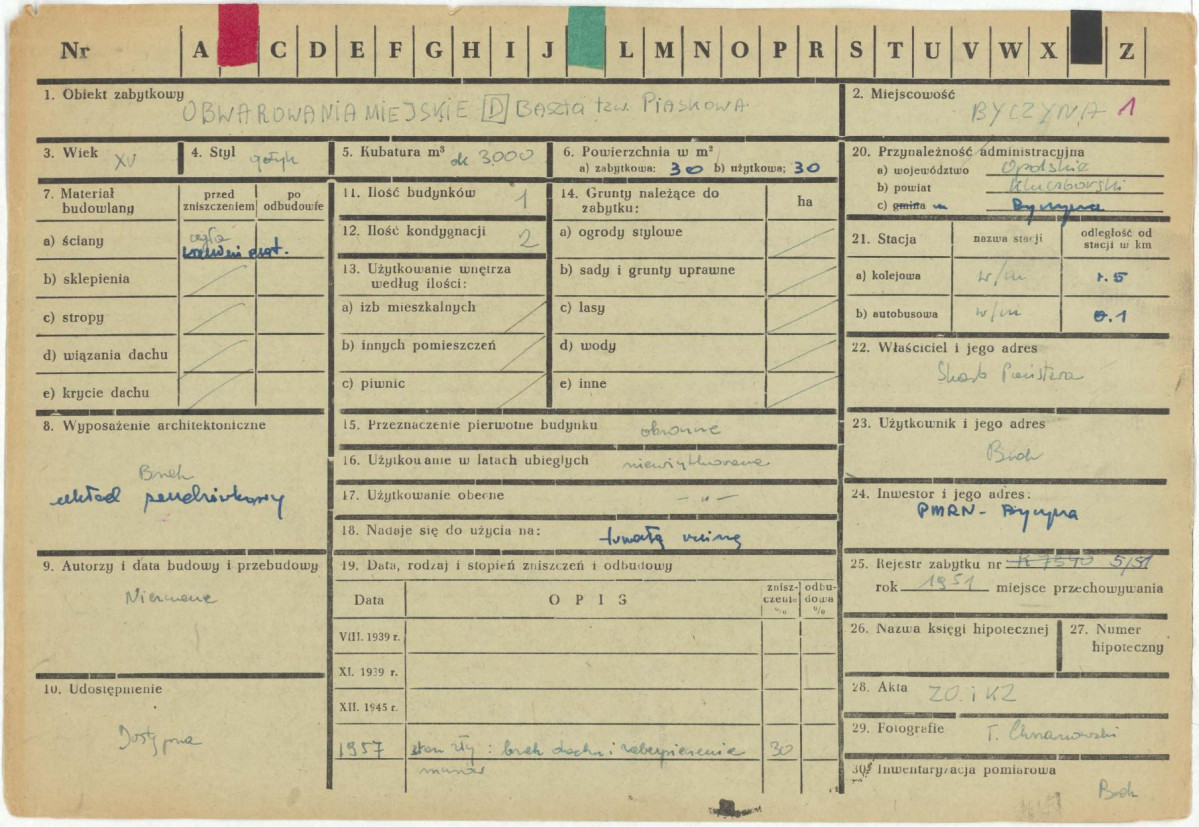 Nr A C D E F G H I J L M N O P R S T U V W X Z
1. Obiekt zabytkowy
OBWAROWANIA MIEJSKIE D BASZTA tzw. PIASKOWA
2. Miejscowość
BYCZYNA 1
3. Wiek XV
4. Styl gotyk
5. Kubatura m³ ok 3000
6. Powierzchnia w m²
a) zabytkowa: 30 b) użytkowa: 30
7. Materiał budowlany
przed zniszczeniem
po odbudowie
a) ściany
cegła
b) sklepienia
c) stropy
d) wiązania dachu
e) krycie dachu
8. Wyposażenie architektoniczne
Brak
układ
9. Autorzy i data budowy i przebudowy
Nieznane
10. Udostępnienie
Dostępna
11. Ilość budynków 1
12. Ilość kondygnacji 2
13. Użytkowanie wnętrza
według ilości:
a) izb mieszkalnych
b) innych pomieszczeń
c) piwnic
14. Grunty należące do
zabytku:
ha
a) ogrody stylowe
b) sady i grunty uprawne
c) lasy
d) wody
e) inne
15. Przeznaczenie pierwotne budynku obronne
16. Użytkowanie w latach ubiegłych nieużytkowane
17. Użytkowanie obecne - „ -
18. Nadaje się do użycia na: trwałą ruinę
19. Data, rodzaj i stopień zniszczeń i odbudowy
Data
OPIS
znisz-
czenie
%
odbu-
dowa
%
VIII. 1939 r.
XI. 1939 r.
XII. 1945 r.
1957 stan zły : brak dachu i zabezpieczenia 30
murów
20. Przynależność administracyjna
a) województwo Opolskie
b) powiat Kluczborski
c) gmina m Byczyna
21. Stacja
nazwa stacji
odległość od
stacji w km
a) kolejowa w/m 1.5
b) autobusowa w/m 0.1
22. Właściciel i jego adres
Skarb Państwa
23. Użytkownik i jego adres
Brak
24. Inwestor i jego adres:
PMRN - Byczyna
25. Rejestr zabytku nr 5/51
rok 1951 miejsce przechowywania
26. Nazwa księgi hipotecznej
27. Numer
hipoteczny
28. Akta ZO. i KZ
29. Fotografie T. Chrzanowski
30. Inwentaryzacja pomiarowa
Brak